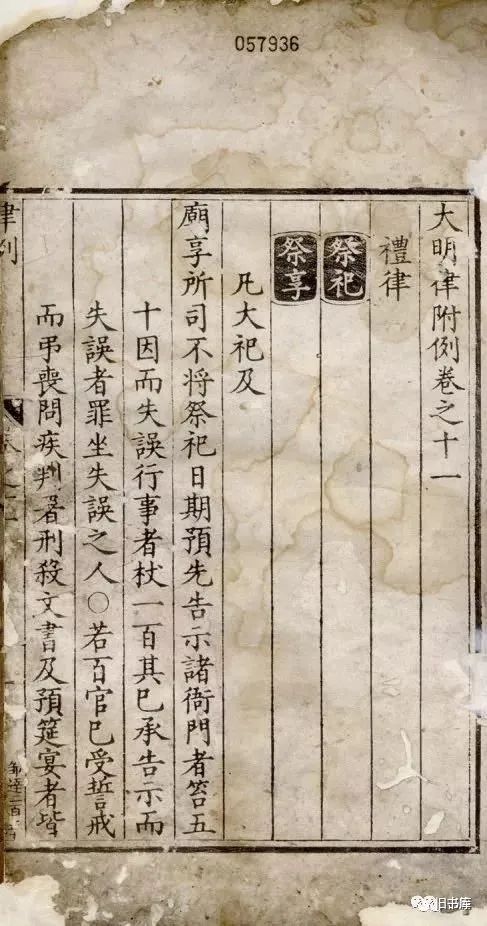 057936
大明律附例卷之十一
禮律
祭祀
祭享
凡大祀及
廟享所司不将祭祀日期預先告示諸衙門者笞五
十因而失誤行事者杖一百其巳承告示而
失誤者罪坐失誤之人○若百官巳受誓戒
而弔喪問疾判署刑殺文書及預筵宴者皆
律例
旧书库